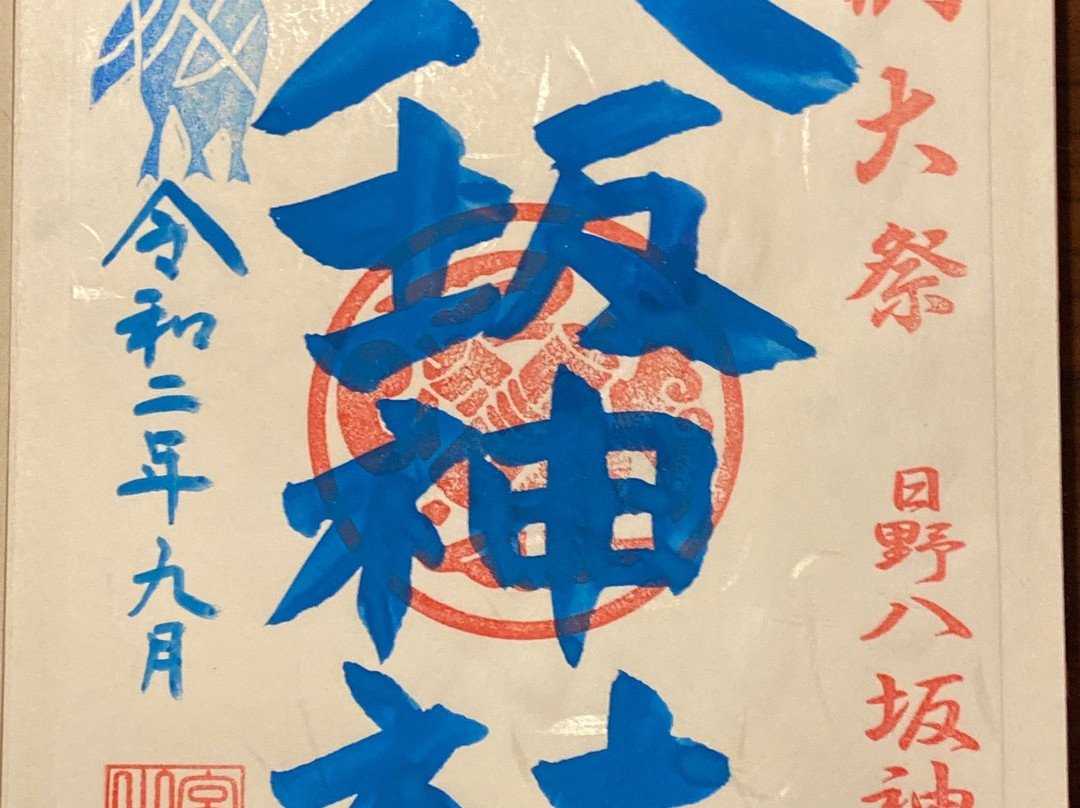 大祭
日野八坂神
八坂神社
令和二年九月